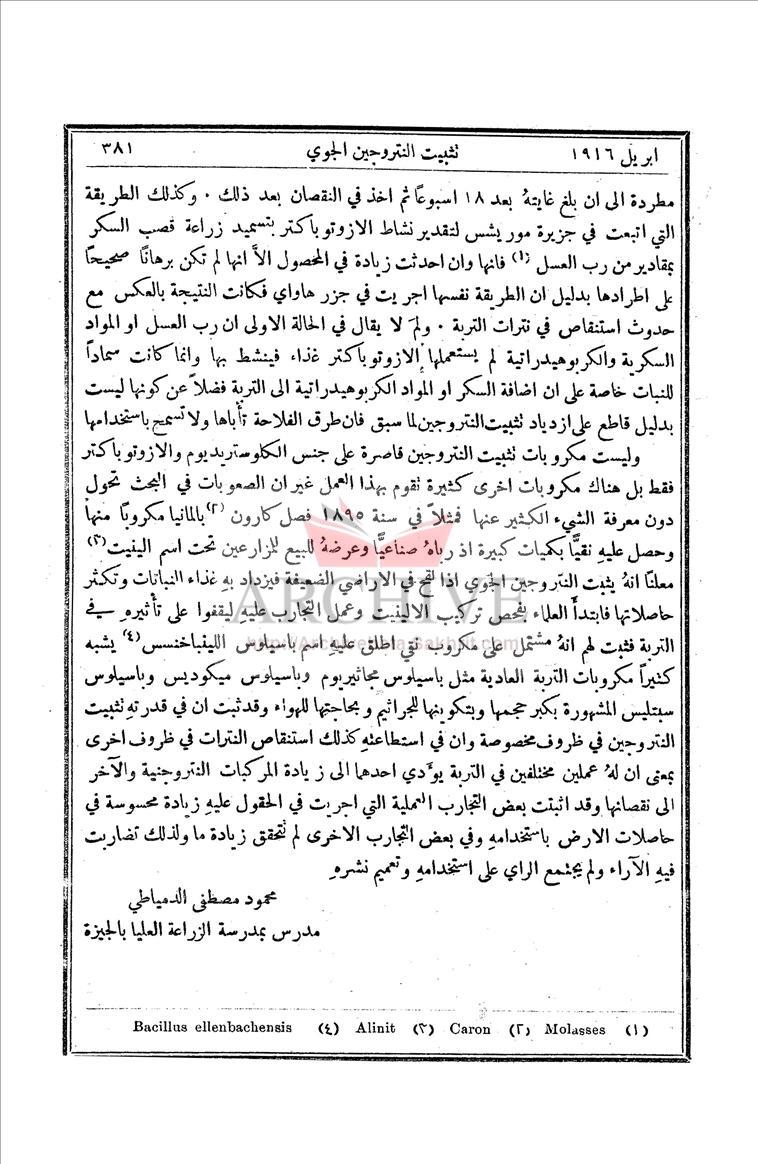 ابريل ١٩١٦ تثبيت النتروجين الجوي ٣٨١
مطردة الى ان بلغ غايتهُ بعد ١٨ اسبوعاً ثم اخذ في النقصان بعد ذلك ٠ وكذلك الطريقة
التي اتبعت في جزيرة موريشس لتقدير نشاط الازوتوباكتر بتسميد زراعة قصب السكر
بمقادير من رب العسل (١) فانها وان احدثت زيادة في المحصول الاَّ انها لم تكن برهاناً صحيحاً
على اطرادها بدليل ان الطريقة نفسها اجريت في جزر هاواي فكانت النتيجة بالعكس مع
حدوث استنقاص في نترات التربة ٠ ولمَ لا يقال في الحالة الاولى ان رب العسل او المواد
السكرية والكربوهيدراتية لم يستعملها الازوتوباكتر غذاء فينشط بها وانما كانت سماداً
للنبات خاصة على ان اضافة السكر او المواد الكربوهيدراتية الى التربة فضلاً عن كونها ليست
بدليل قاطع على ازدياد تثبيت النتروجين لما سبق فان طرق الفلاحة تأباها ولا تسمح باستخدامها
وليست مكروبات تثبيت النتروجين قاصرة على جنس الكلوستريديوم والازوتوباكتر
فقط بل هناك مكروبات اخرى كثيرة تقوم بهذا العمل غير ان الصعوبات في البحث تحول
دون معرفة الشيء الكثير عنها فمثلاً في سنة ١٨٩٥ فصل كارون (٢) بالمانيا مكروباً منها
وحصل عليهِ نقيًّا بكميات كبيرة اذ رباهُ صناعيًّا وعرضهُ للبيع للمزارعين تحت اسم الينيت (٣)
معلناً انهُ يثبت النتروجين الجوي اذا لقح في الاراضي الضعيفة فيزداد بهِ غذاء النباتات وتكثر
حاصلاتها فابتدأَ العلماء بفحص تركيب الالينيت وعمل التجارب عليهِ ليقفوا على تأثيرهِ في
التربة فثبت لهم انهُ مشتمل على مكروب نقي اطلق عليهِ اسم باسيلوس اللينباخنسس (٤) يشبه
كثيراً مكروبات التربة العادية مثل باسيلوس مجاثيريوم وباسيلوس ميكوديس وباسيلوس
سبتليس المشهورة بكبر حجمها وبتكوينها للجراثيم وبحاجتها للهواء وقد ثبت ان في قدرتهِ تثبيت
النتروجين في ظروف مخصوصة وان في استطاعتهِ كذلك استنقاص النترات في ظروف اخرى
بمعنى ان لهُ عملين مختلفين في التربة يؤَدي احدهما الى زيادة المركبات النتروجنية والآخر
الى نقصانها وقد اثبتت بعض التجارب العملية التي اجريت في الحقول عليهِ زيادة محسوسة في
حاصلات الارض باستخدامهِ وفي بعض التجارب الاخرى لم تتحقق زيادة ما ولذلك تضاربت
فيهِ الآراء ولم يجتمع الراي على استخدامهِ وتعميم نشرهِ
محمود مصطفى الدمياطي
مدرس بمدرسة الزراعة العليا بالجيزة
(١) Molasses (٢) Caron (٣) Alinit (٤) Bacillus ellenbachensis
ARCHIVE